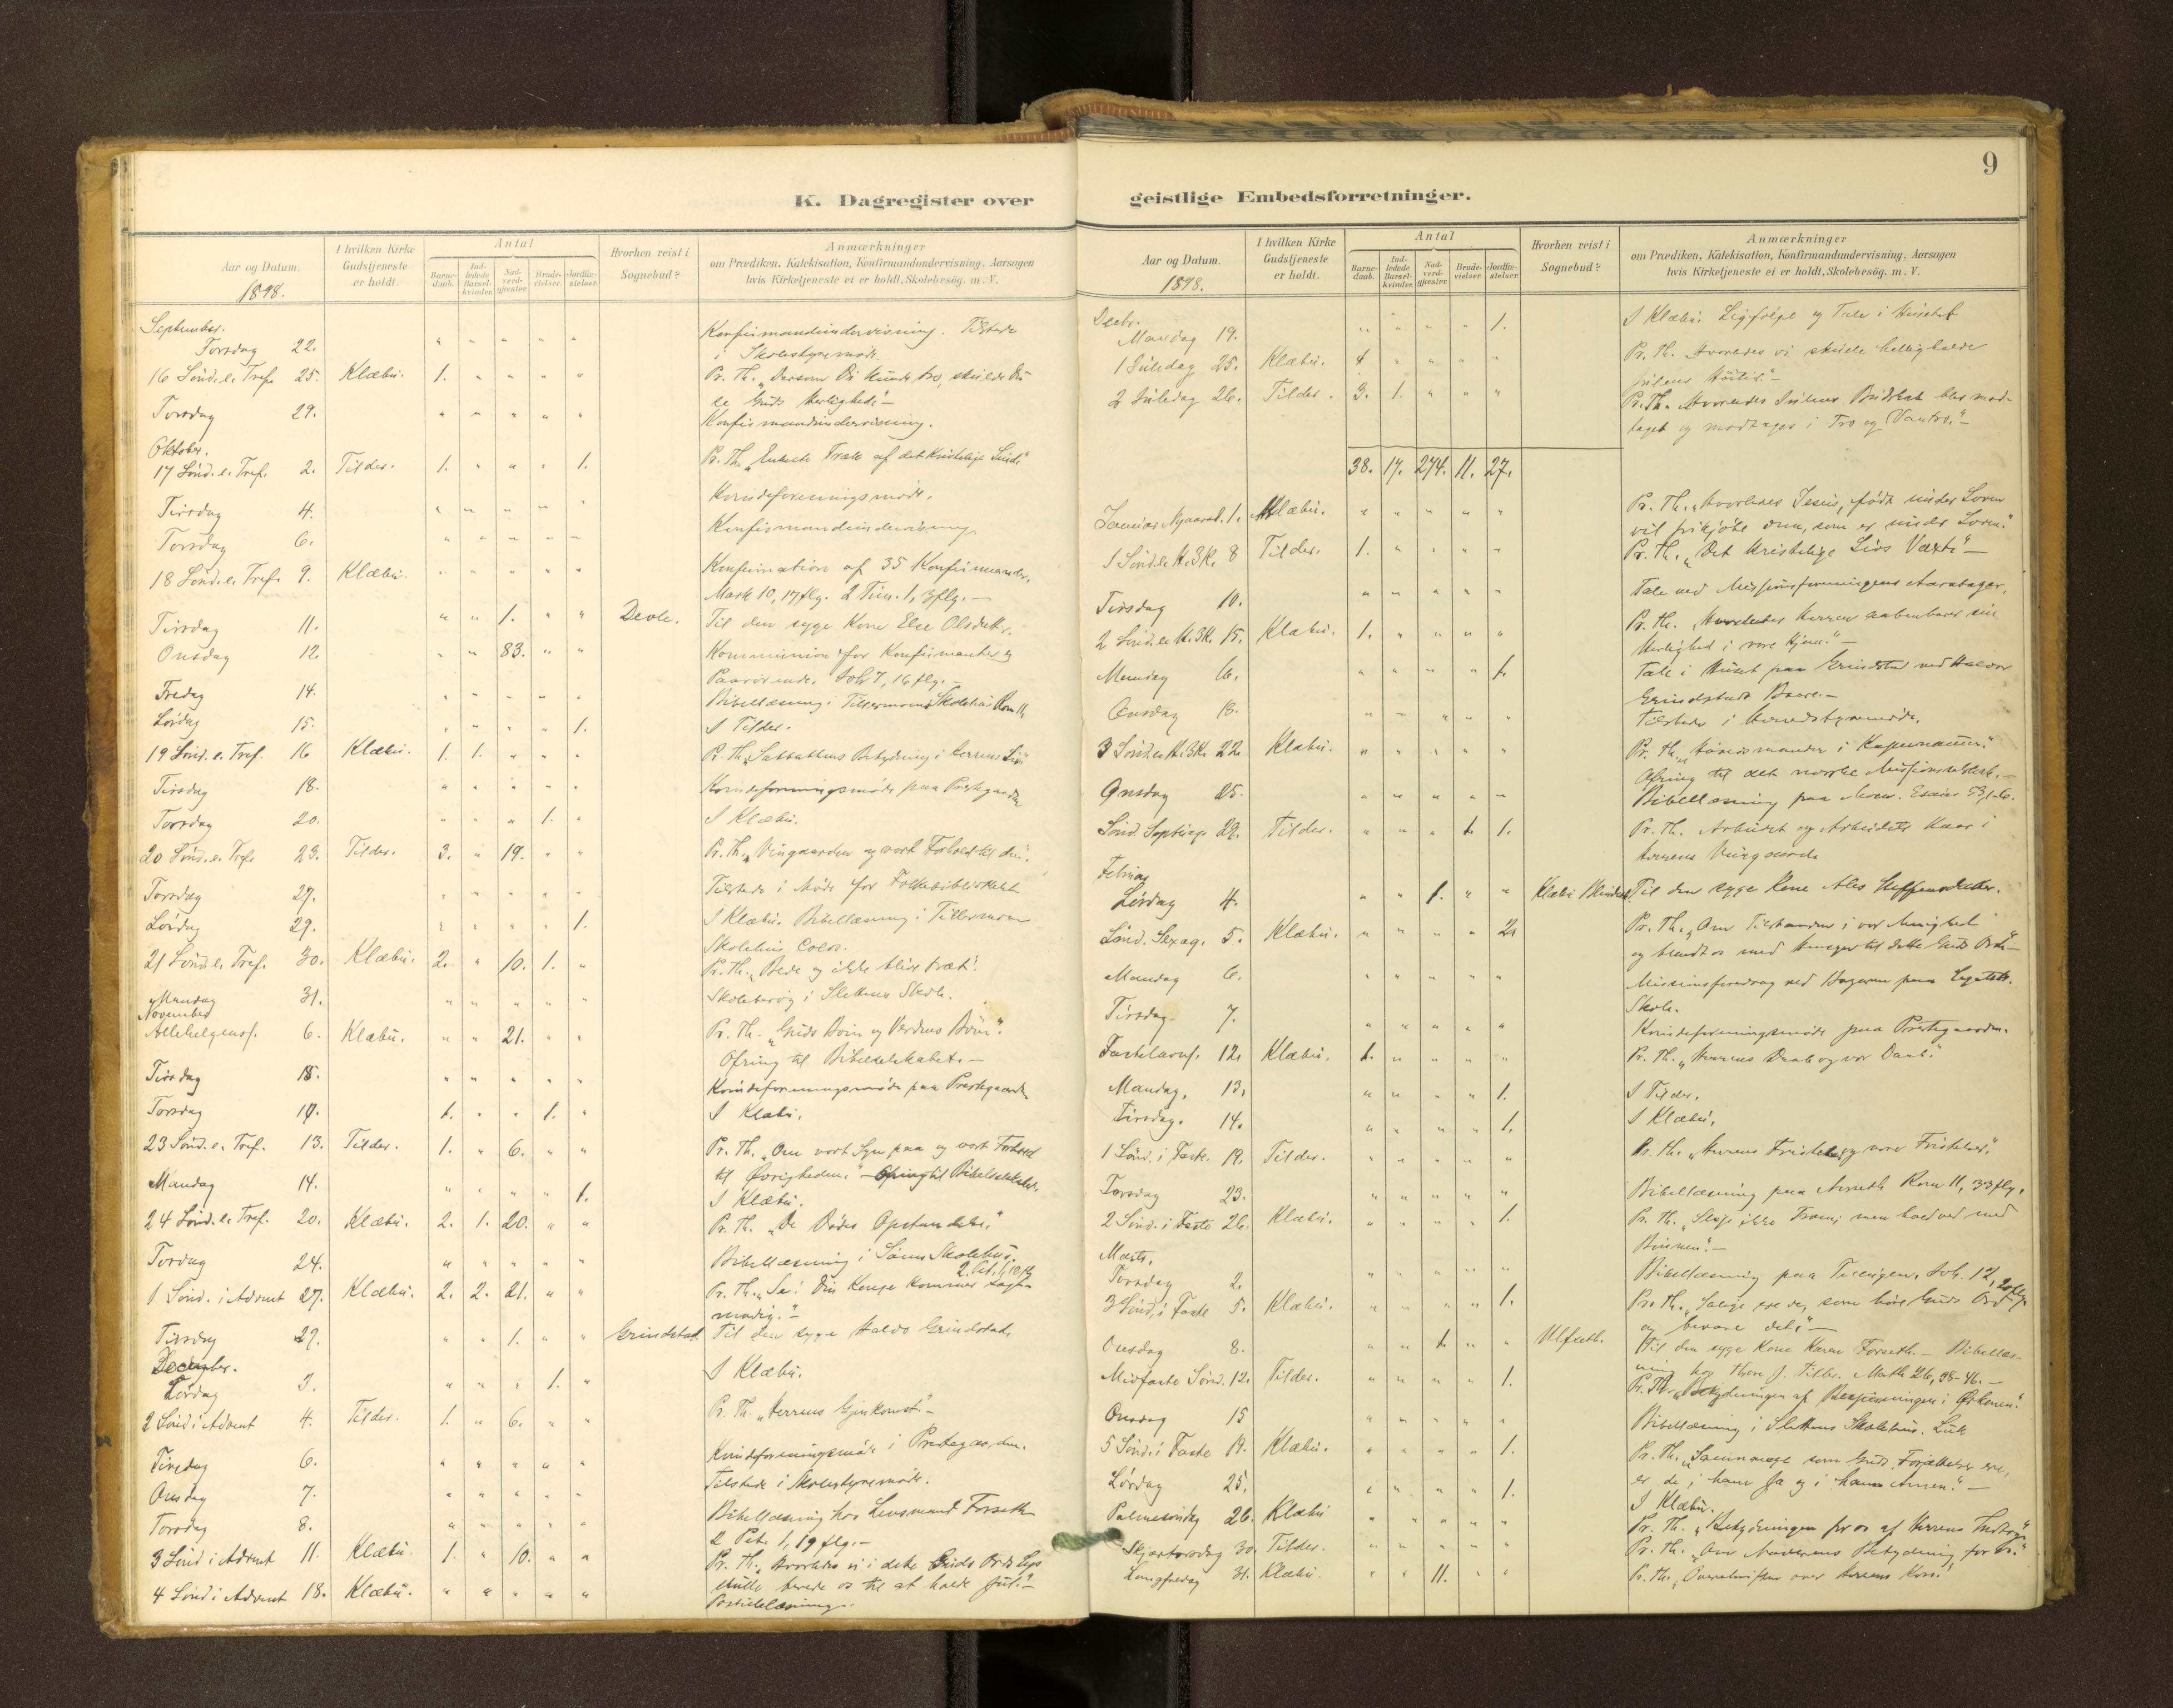 K. Dagregister over
Aar og Datum. 1898.
I hvilken Kirke Gudstjeneste er holdt.
Antal
Barnedaab. Indledede Barselkvinder. Nadverdgjæster. Brudevielser. Jordfæstelser.
Hvorhen reist i Sognebud?
Anmærkninger
om Prædiken, Katekisation, Konfirmandundervisning, Aarsagen
hvis Kirketjeneste ei er holdt, Skolebesøg. m. V.
September.
Torsdag 22. " " " " " Konfirmandundervisning. Tilstede
i Skolestyremøde.
16 Sønd. e. Tref. 25. Klæbu. 1. " " " " Pr. Th. "Dersom Du kunde tro, skulde Du
se Guds Herlighed."—
Torsdag 29. " " " " " Konfirmandundervisning.
Oktober.
17 Sønd. e. Tref. 2. Tilder. 1. " " " 1. Pr. Th. af det kristelige Sind"
Tirsdag 4. " " " " " Kvindeforeningsmøde.
Torsdag 6. " " " " " Konfirmandundervisning.
18 Sønd. e. Tref. 9. Klæbu. " " " " " Konfirmation af 35 Konfirmander.
Mark 10, 17 flg. 2 Tim. 1, 3 flg. —
Tirsdag 11. " " 1. " " Devle. Til den syge Kone Else Olsdatter.
Onsdag 12. " " 83. " " Kommunion for Konfirmanter og
Paarørende. Joh 7, 16 flg. —
Fredag 14. " " " " " Bibellæsning i Tillermoens Skolehus Rom 11,
Lørdag 15. " " " " 1. I Tilder.
19 Sønd. e. Tref. 16 Klæbu. 1. 1. " " " Pr. Th. "Sabbathens Betydning i Herrens Liv"
Tirsdag 18. " " " " " Kvindeforeningsmøde paa Prestegaarden
Torsdag 20. " " " 1. " I Klæbu.
20 Sønd. e. Tref. 23. Tilder. 3. " 19. " " Pr. Th. "Vingaarden og vort Forhold til den".
Torsdag 27. " " " " " Tilstede i Møde for Folkebibliotheket
Lørdag 29. " " " " 1. I Klæbu. Bibellæsning i Tillermoen
Skolehus Colos.
21 Sønd. e. Tref. 30. Klæbu. 2. " 10. 1. " Pr. Th. "Bede og ikke blive træt".
Mandag 31. " " " " " Skolebesøg i Slettens Skole.
November
Allehelgensf. 6. Klæbu. " " 21. " " Pr. Th. "Guds Børn og Verdens Børn".
Ofring til Bibelselskabet. —
Tirsdag 8. " " " " " Kvindeforeningsmøde paa Prestegaarden
Torsdag 10. 1. " " 1. " I Klæbu.
23 Sønd. e. Tref. 13. Tilder. 1. " 6. " " Pr. Th. "Om vort Syn paa og vort Forhold
til Øvrigheden." — Ofring til Bibelselskabet.
Mandag 14. " " " " 1. I Klæbu.
24 Sønd. e. Tref. 20. Klæbu. 2. 1. 20. " " Pr. Th. "De Dødes Opstandelse."
Torsdag 24. " " " " " Bibellæsning i Skolehus.
1 Sønd. i Advent 27. Klæbu. 2. 2. 21. " " Pr. Th. "Se! Din Konge kommer sagt-
modig." —
Tirsdag 29. " " 1. " " Grindstad. Til den syge Haldo Grindstad.
December.
Lørdag 3. " " " 1. " I Klæbu.
2 Sønd i Advent 4. Tilder. 1. " 6. " " Pr. Th. "Herrens Gjenkomst." —
Tirsdag 6. " " " " " Kvindeforeningsmøde i Prestegaarden.
Onsdag 7. " " " " " Tilstede i Skolestyremøde.
Torsdag 8. " " " " " Bibellæsning hos Lensmand Forseth
2 Petr. 1, 19 flg. —
3 Sønd i Advent 11. Klæbu. 1. " 10. " " Pr. Th. "Hvorledes vi i dette Guds Ords Lys
skulle berede os til at holde Jul." —
4 Sønd i Advent 18. Klæbu. " " " " " Postillelæsning.
9
geistlige Embedsforretninger.
Aar og Datum. 1898.
I hvilken Kirke Gudstjeneste er holdt.
Antal
Barnedaab. Indledede Barselkvinder. Nadverdgjæster. Brudevielser. Jordfæstelser.
Hvorhen reist i Sognebud?
Anmærkninger
om Prædiken, Katekisation, Konfirmandundervisning. Aarsagen
hvis Kirketjeneste ei er holdt, Skolebesøg. m. V.
Decbr.
Mandag 19. " " " " 1. I Klæbu. Ligfølge og Tale i Huset
1 Juledag 25. Klæbu. 4 " " " " Pr. Th. Hvorledes vi skulle helligholde
Julens Høitid." —
2 Juledag 26. Tilder. 3. 1. " " " Pr. Th. Hvorledes Julens Budskab blev mod-
taget og modtages i Tro og Vantro." —
38. 17. 274. 11. 27.
Januar Nyaarsd. 1. Klæbu. " " " " " Pr. Th. "Hvorledes Jesus, født under Loven
vil frikjøbe dem, som er under Loven."
1 Sønd. e. H. 3 K. 8 Tilder. 1. " " " " Pr. Th. "Det kristelige Livs Væxt" —
Tirsdag 10. " " " " " Tale ved Missionsforeningens Aarsdag.
2 Sønd. e. H. 3 K. 15. Klæbu. 1. " " " " Pr. Th. Hvorledes Herren aabenbarer sin
Herlighed i vore Hjem." —
Mandag 16. " " " " 1. Tale i Huset paa Grindstad ved Haldor
Grindstads Baare. —
Onsdag 18. " " " " " Tilstede i Herredsstyremøde.
3 Sønd. e. H. 3 K. 22. Klæbu. " " " " " Pr. Th. "Høvedsmanden i Kapernaum."
Ofring til det norske Missionsselskab. —
Onsdag 25. " " " " " Bibellæsning paa Esaias 53, 1-6.
Sønd. Septuag. 29. Tilder. " " " 1. 1. Pr. Th. Arbeidet og Arbeidets Kaar i
Herrens Vingaard.
Februar
Lørdag 4. " " 1. " " Klæbu Til den syge Kone Ales Steffensdatter.
Sønd. Sexag. 5. Klæbu. " " " " 2. Pr. Th. "Om Tilstanden i vor Menighed
og blandt os med Hensyn til dette Guds Ord" —
Mandag 6. " " " " " Missionsforedrag ved
Skole.
Tirsdag 7. " " " " " Kvindeforeningsmøde paa Prestegaarden.
Fastelavnss. 12. Klæbu. 1. " " " " Pr. Th. "Herrens Daab og vor Daab."
Mandag. 13. " " " " 1. I Tilder.
Tirsdag. 14. " " " " 1. I Klæbu.
1 Sønd. i Faste. 19. Tilder. " " " " " Pr. Th. "Herrens Fristelse og vore Fristelser."
Torsdag 23. " " " " " Bibellæsning paa Rom 11, 33 flg.
2 Sønd. i Faste 26. Klæbu. " " " " 1. Pr. Th. men hold ved med
Bønnen." —
Marts.
Torsdag 2. " " " " " Bibellæsning paa Joh. 12, 20 flg.
3 Sønd. i Faste 5. Klæbu. " " " " 1. Pr. Th. "Salige ere de, som høre Guds Ord
og bevare det" —
Onsdag 8. " " 1. " " Ulfseth. Til den syge Kone Karen Forseth. — Bibellæs-
ning hos Tilder. Math 26, 38-46. —
Midfaste Sønd. 12. Tilder. " " " " 1. Pr. Th. "Betydningen af Bespisningen i Ørkenen."
Onsdag 15 " " " " " Bibellæsning i Slettens Skolehus. Luk
5 Sønd. i Faste 19. Klæbu. " " " " 1. Pr. Th. "Saamange som Guds Forjættelser ere,
er de i ham Ja og i ham Amen." —
Lørdag 25. " " " " 1. I Klæbu.
Palmesøndag 26. Klæbu " " " " " Pr. Th. "Betydningen for os af Herrens Indtog"
Skjærtorsdag 30. Tilder. " " " " " Pr. Th. "Om Nadverens Betydning for os."
Langfredag 31. Klæbu. " " 11. " " Pr. Th. "Overskriften over Herrens Kors."